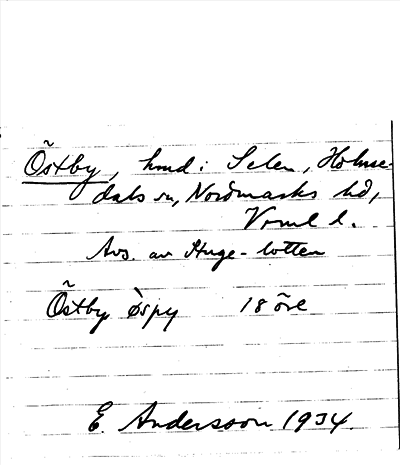 Östby, hmd i Selen, Holmse-
dals sn, Nordmarks hd,
Vrml l.
Avs. av Huge-lotten
Östby òspy 18 öre
E. Andersson 1934.